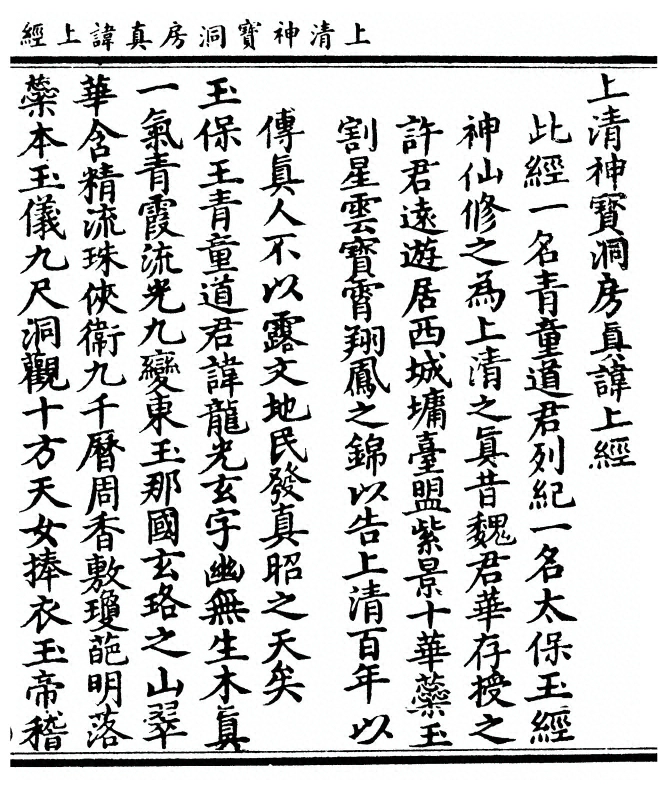 上清神寶洞房真諱上經
上清神寶洞房眞諱上經
此經一名青童道君列紀一名太保玉經
神仙修之為上清之眞昔魏君華存授之
許君遠遊居西城墉臺盟紫景十華蘂玉
割星雲寶霄翔鳳之錦以告上清百年以
傳眞人不以露文地民發真昭之天矣
玉保王青童道君諱龍光玄字幽無生木眞
一氣青霞流光九變東玉那國玄珞之山翠
華含精流珠俠衛九千曆周香敷瓊葩明落
蘂本玉儀九尺洞觀十方天女捧衣玉帝稽